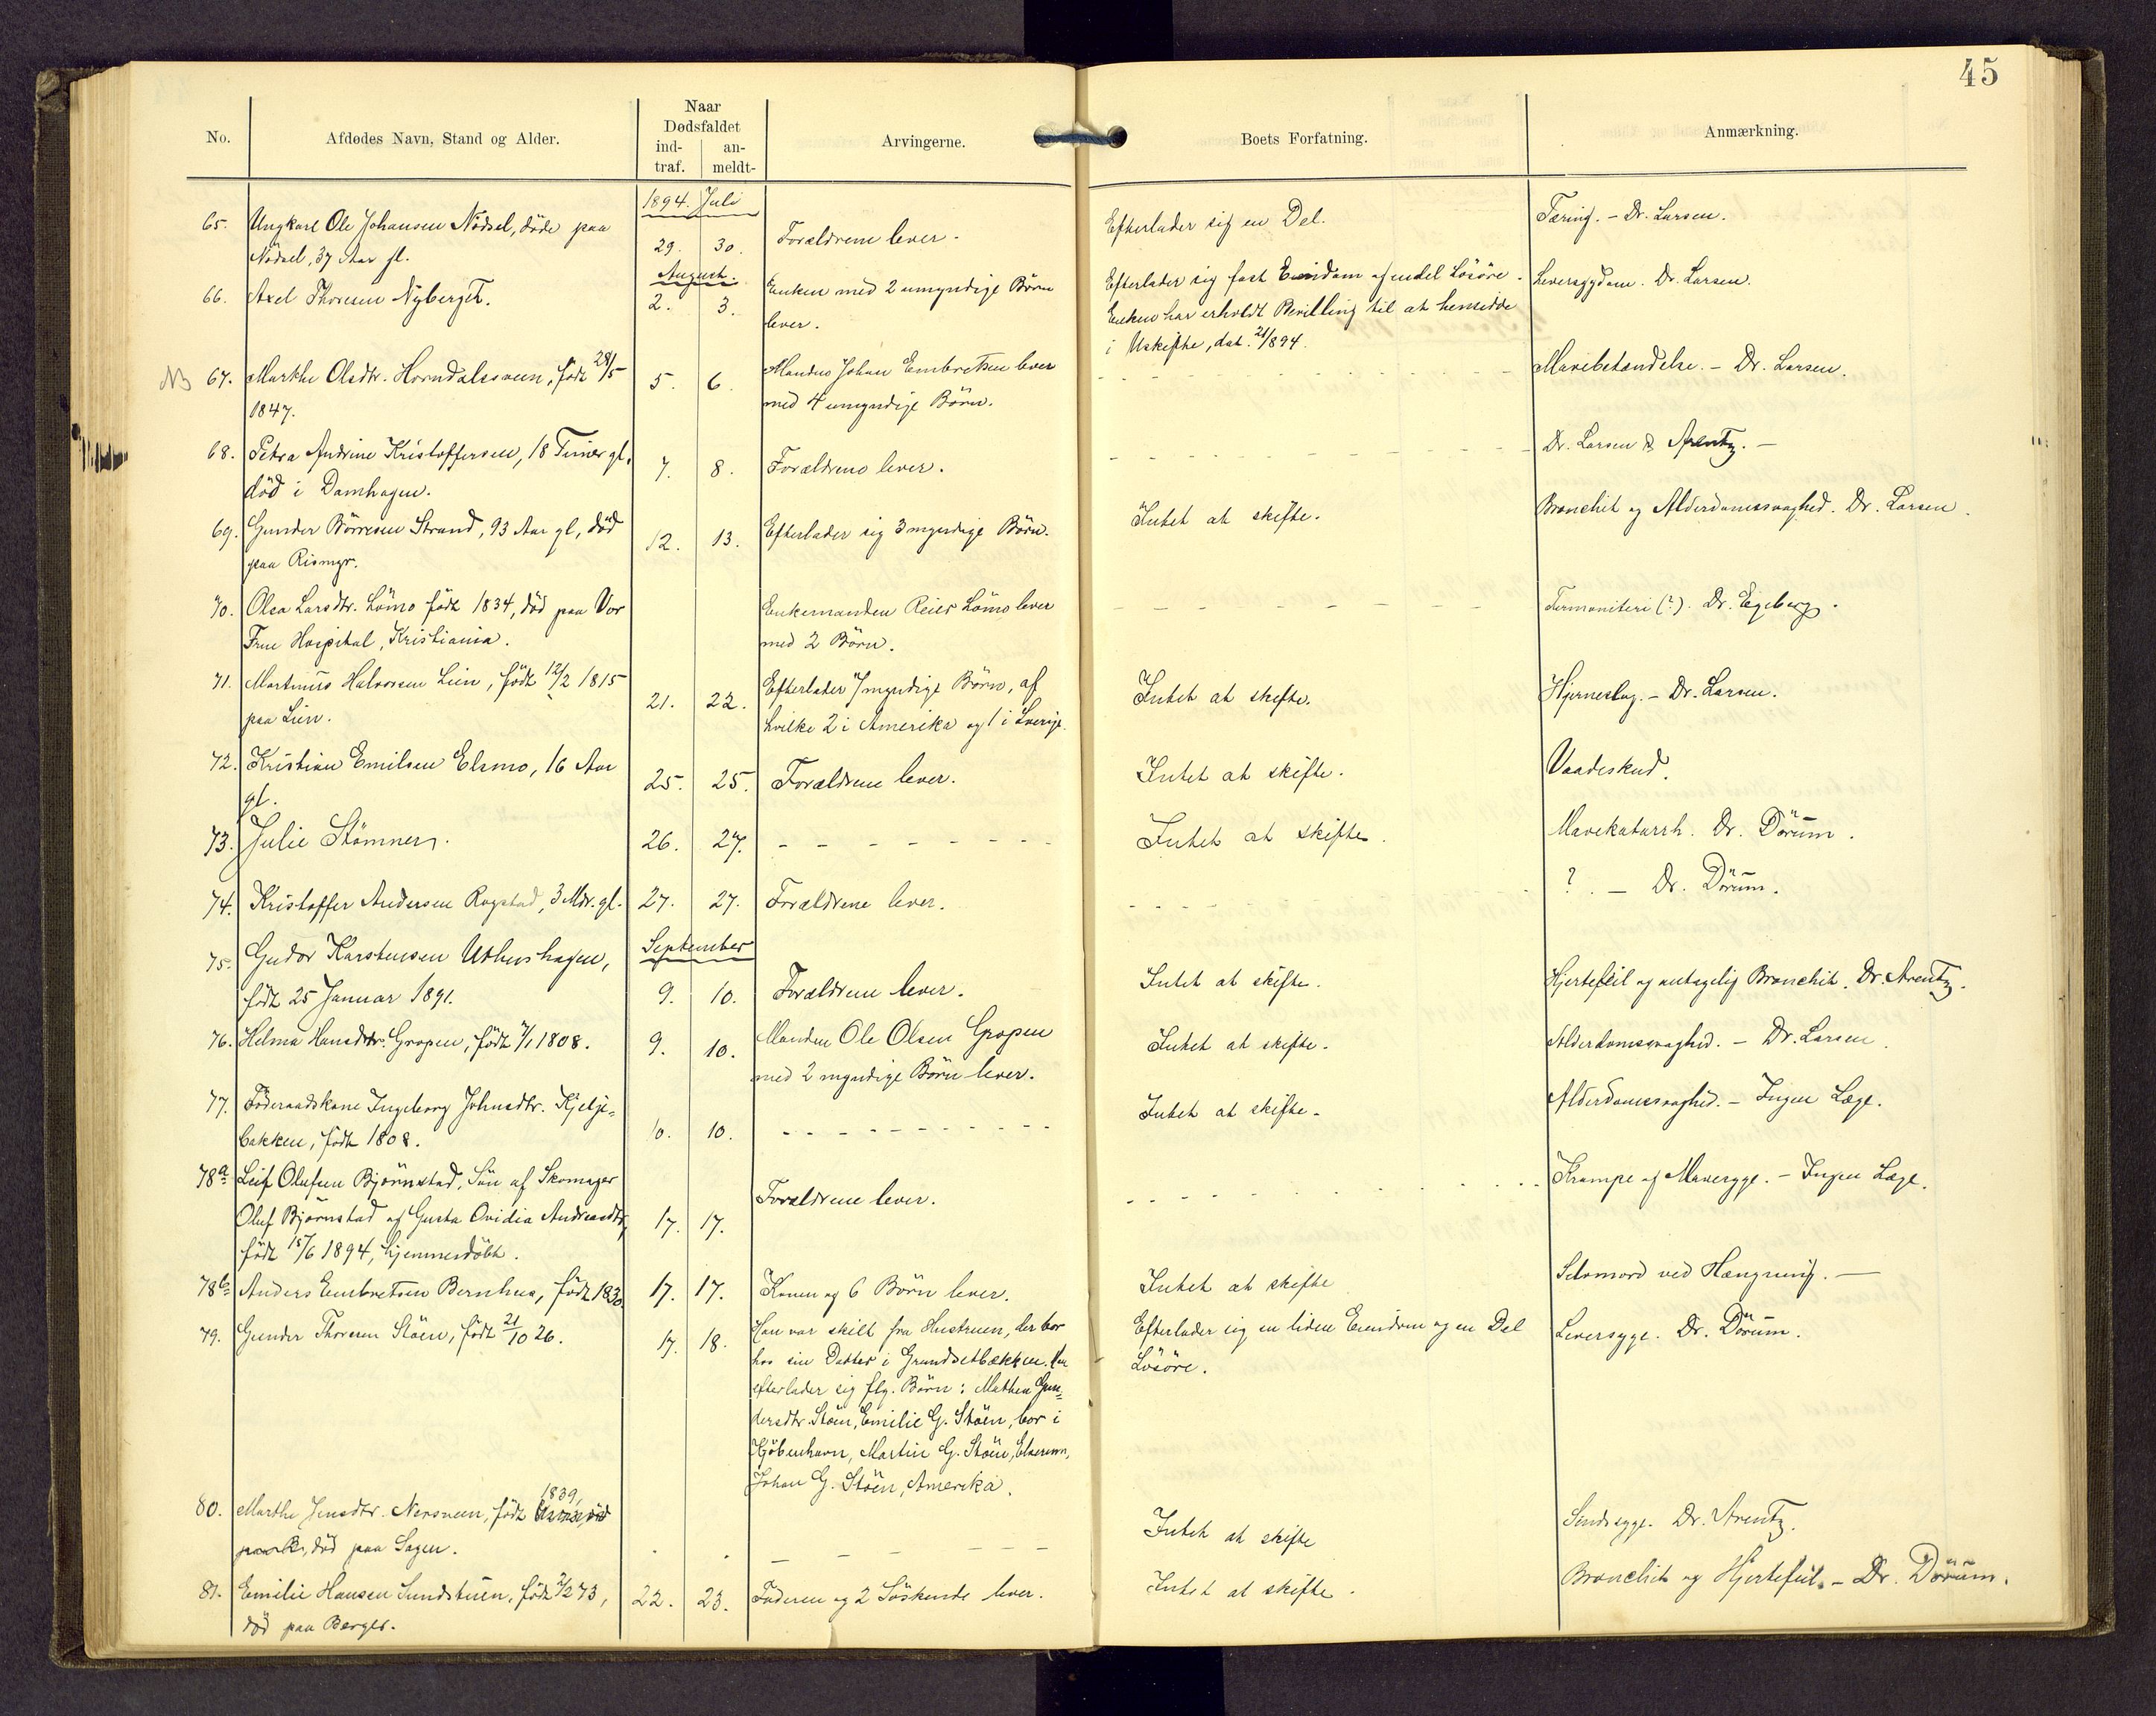 45
No.
Afdødes Navn, Stand og Alder.
Naar
Dødsfaldet
ind-
traf.
an-
meldt-
Arvingerne.
Boets Forfatning.
Anmærkning.
1894. Juli
65. Ungkarl Ole Johansen Nödsel, döde paa
Nödsel, 37 Aar gl.
29. 30. Forældrene lever. Efterlader sig en Del. Tæring. - Dr. Larsen.
August.
66. Axel Thoresen Nyberget. 2. 3. Enken med 2 umyndige Börn
lever.
Efterlader sig fast Eiendom og endel Lösöre.
Enken har erholdt Bevilling til at hensidde
i Uskifte, dat. 21/894.
Leversygdom. Dr. Larsen.
NB 67. Marthe Olsdtr. Horndalsveen, født 28/5
1847.
5. 6. Manden Johan Embretsen lever
med 4 umyndige Börn.
Mavebetændelse. - Dr. Larsen.
68. Petra Andrine Kristoffersen, 18 Timer gl.
död i Damhagen.
7. 8. Forældrene lever. Dr. Larsen & Arentz. -
69. Gunder Börresen Strand, 93 Aar gl, död
paa Rismyr.
12. 13. Efterlader sig 3 myndige Börn. Intet at skifte. Bronchit og Alderdomssvaghed. Dr. Larsen.
70. Olea Larsdtr. Lömo födt 1834, död paa Vor
Frue Hospital, Kristiania.
Enkemanden Reier Lömo lever
med 2 Börn.
(?). Dr. Egeberg.
71. Martinus Halvorsen Lien, födt 12/2 1815
paa Lien.
21. 22. Efterlader 7 myndige Börn, af
hvilke 2 i Amerika og 1 i Sverige.
Intet at skifte. Hjerneslag. - Dr. Larsen.
72. Kristian Emilsen Elsmo, 16 Aar
gl.
25. 25. Forældrene lever. Intet at skifte. Vaadeskud.
73. Julie Stömner. 26. 27. - - - Intet at skifte. Mavekatarrh. Dr. Dörum.
74. Kristoffer Andersen Rogstad, 3 Mdr. gl. 27. 27. Forældrene lever. ? - Dr. Dörum.
September
75. Gudor Karstensen Uthushagen,
födt 25 Januar 1891.
9. 10. Forældrene lever. Intet at skifte. Hjertefeil og antagelig Bronchit. Dr. Arentz.
76. Helma Hansdtr. Gropen, födt 7/1 1808. 9. 10. Manden Ole Olsen Gropen
med 2 myndige Börn lever.
Intet at skifte. Alderdomssvaghed. - Dr. Larsen.
77. Föderaadskone Ingeborg Johnsdtr. Kjelje-
bakken, födt 1808.
10. 10. - - - Intet at skifte. Alderdomssvaghed. - Ingen Læge.
78a Leif Olufsen Björnstad, Sön af Skomager
Oluf Björnstad og Gusta Ovidia Andreasdtr,
födt 15/6 1894, hjemmedöbt.
17. 17. Forældrene lever. Krampe og Mavesyge. - Ingen Læge.
78b Anders Embretsen Bernhus, födt 1830. 17. 17. Konen og 6 Börn lever. Intet at skifte Selvmord ved Hængning. -
79. Gunder Thoresen Stöen, födt 21/10 26. 17. 18. Han var skilt fra Hustruen, der bor
hos sin Datter i Grundsetbækken. Han
efterlader sig flg. Börn: Mathea Gun-
dersdtr. Stöen, Emilie G. Stöen, bor i
Kjöbenhavn, Martin G. Stöen, Elverum,
Johan G. Stöen, Amerika.
Efterlader sig en liden Eiendom og en Del
Lösöre.
Leversyge. Dr. Dörum.
80. Marthe Jensdtr. Nersveen, födt 1839,
död paa Sagen.
- - - Intet at skifte Sindssyge. Dr. Arentz.
81. Emilie Hansen Sundstuen, födt 2/2 73,
död paa Berger.
22. 23. Faderen og 2 Söskende lever. Intet at skifte. Bronchit og Hjertefeil. - Dr. Dörum.